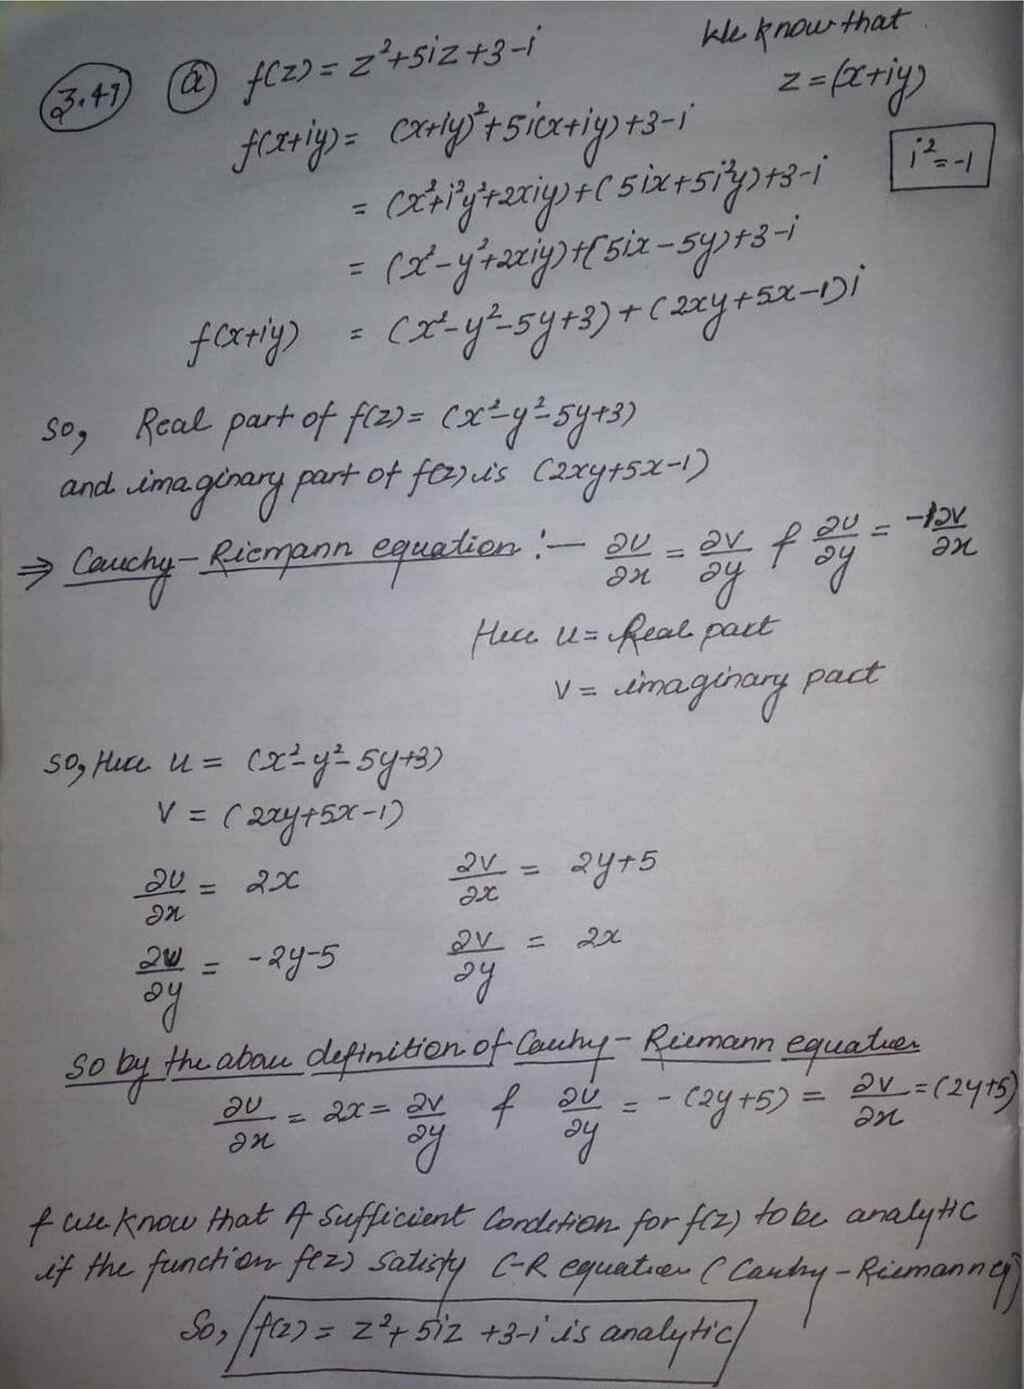 3.47 (a) f(z) = z²+5iz+3-i We know that
z = (x+iy)
f(x+iy) = (x+iy)²+5i(x+iy)+3-i
i² = -1
= (x²+i²y²+2xiy)+(5ix+5i²y)+3-i
= (x²-y²+2xiy)+(5ix-5y)+3-i
f(x+iy) = (x²-y²-5y+3)+(2xy+5x-1)i
So, Real part of f(z) = (x²-y²-5y+3)
and imaginary part of f(z) is (2xy+5x-1)
⇒ Cauchy-Riemann equation :- ∂u/∂x = ∂v/∂y & ∂u/∂y = -∂v/∂x
Here u = Real part
v = imaginary part
So, Here u = (x²-y²-5y+3)
v = (2xy+5x-1)
∂u/∂x = 2x ∂v/∂x = 2y+5
∂u/∂y = -2y-5 ∂v/∂y = 2x
So by the above definition of Cauchy-Riemann equation
∂u/∂x = 2x = ∂v/∂y & ∂u/∂y = -(2y+5) = ∂v/∂x = (2y+5)
& we know that A Sufficient Condition for f(z) to be analytic
if the function f(z) satisfy C-R equation (Cauchy-Riemann eq)
So, f(z) = z²+5iz+3-i is analytic